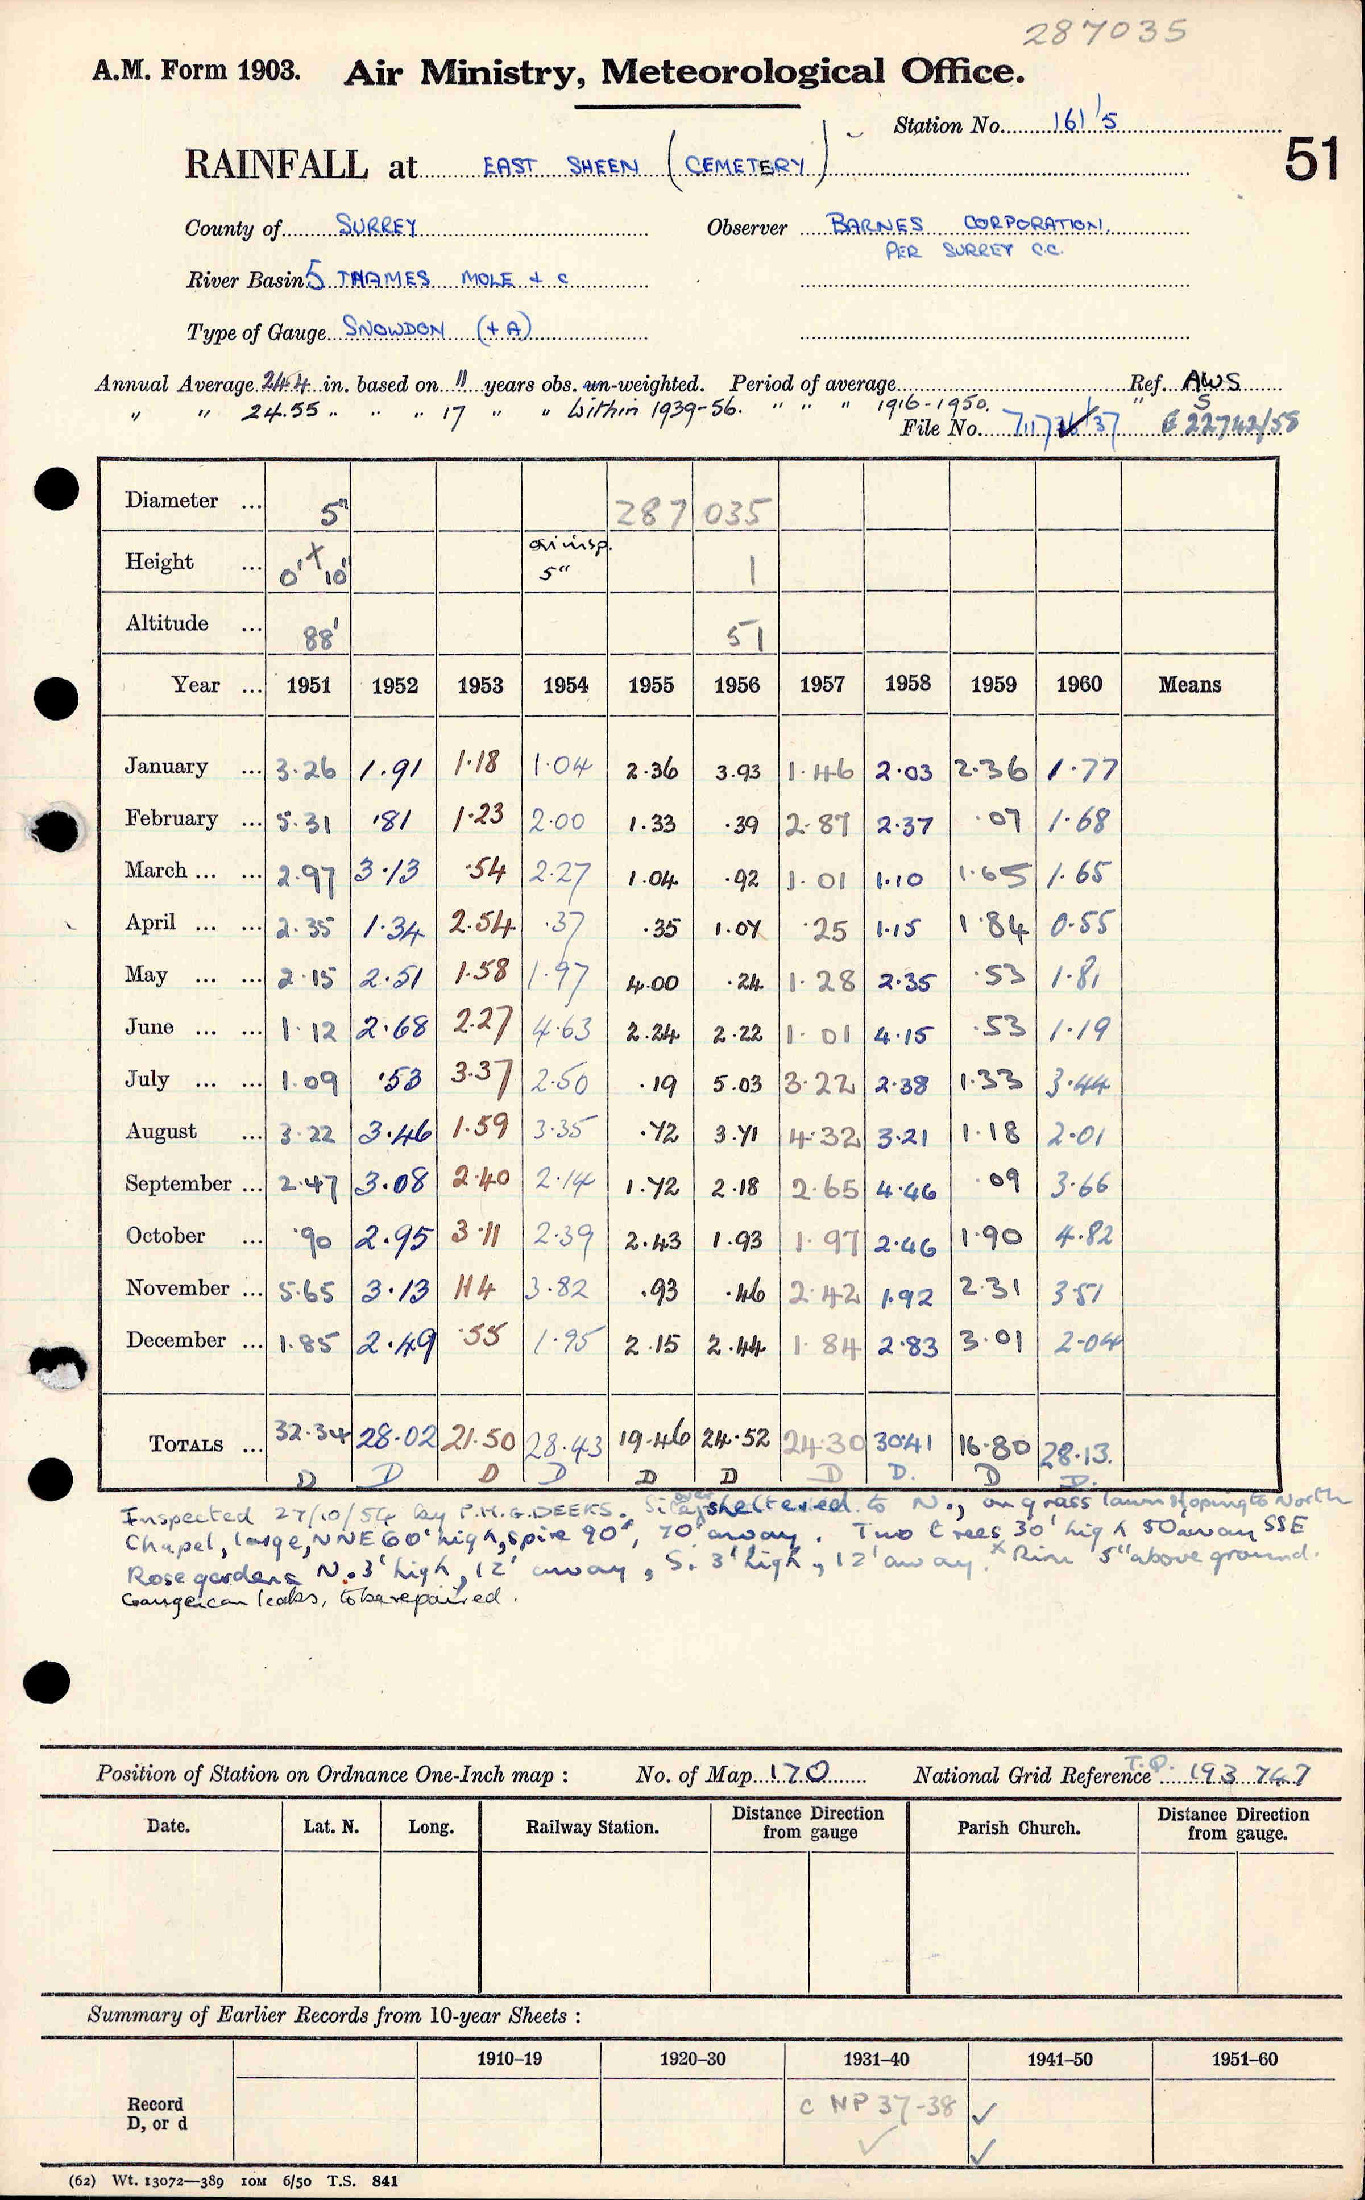 287035
A.M. Form 1903. Air Ministry, Meteorological Office.
Station No. 161/5
51
RAINFALL at EAST SHEEN (CEMETERY)
County of SURREY Observer BARNES CORPORATION,
PER SURREY C.C.
River Basin 5 THAMES MOLE + C
Type of Gauge SNOWDON (+A)
Annual Average 24.4 in. based on 11 years obs. un-weighted. Period of average Ref. AWS
" " 24.55 " " " 17 " " Within 1939-56. " " " 1916-1950. " S
File No. E 22742/58
Diameter ... 5" 287 035
Height ... 0' x 10" on insp. 5" 1
Altitude ... 88' 51
Year ... 1951 1952 1953 1954 1955 1956 1957 1958 1959 1960 Means
January ... 3.26 1.91 1.18 1.04 2.36 3.93 1.46 2.03 2.36 1.77
February ... 5.31 .81 1.23 2.00 1.33 .39 2.87 2.37 .07 1.68
March ... ... 2.97 3.13 .54 2.27 1.04 .92 1.01 1.10 1.65 1.65
April ... ... 2.35 1.34 2.54 .37 .35 1.07 .25 1.15 1.84 0.55
May ... ... 2.15 2.51 1.58 1.97 4.00 .24 1.28 2.35 .53 1.81
June ... ... 1.12 2.68 2.27 4.63 2.24 2.22 1.01 4.15 .53 1.19
July ... ... 1.09 .53 3.37 2.50 .19 5.03 3.22 2.38 1.33 3.44
August ... 3.22 3.46 1.59 3.35 .72 3.71 4.32 3.21 1.18 2.01
September ... 2.47 3.08 2.40 2.14 1.72 2.18 2.65 4.46 .09 3.66
October ... .90 2.95 3.11 2.39 2.43 1.93 1.97 2.46 1.90 4.82
November ... 5.65 3.13 1.14 3.82 .93 .46 2.42 1.92 2.31 3.51
December ... 1.85 2.49 .55 1.95 2.15 2.44 1.84 2.83 3.01 2.04
TOTALS ... 32.34 28.02 21.50 28.43 19.46 24.52 24.30 30.41 16.80 28.13.
D D D D D D D D. D D.
Inspected 27/10/54 by P.H.G. DEEKS. Site over sheltered to N., on grass lawn sloping to North
Chapel, large, NNE 60' high, spire 90', 70' away. Two trees 30' high 50' away SSE
Rose gardens N. 3' high, 12' away, S. 3' high, 12' away. x Rim 5" above ground.
Gauge can leaks, to be repaired.
Position of Station on Ordnance One-Inch map : No. of Map 170 National Grid Reference T.Q. 193 747
Date. Lat. N. Long. Railway Station. Distance Direction from gauge Parish Church. Distance Direction from gauge.
Summary of Earlier Records from 10-year Sheets :
1910–19 1920–30 1931–40 1941–50 1951–60
Record
D, or d
C NP 37-38 ✓
✓ ✓
(62) Wt. 13072—389 10M 6/50 T.S. 841